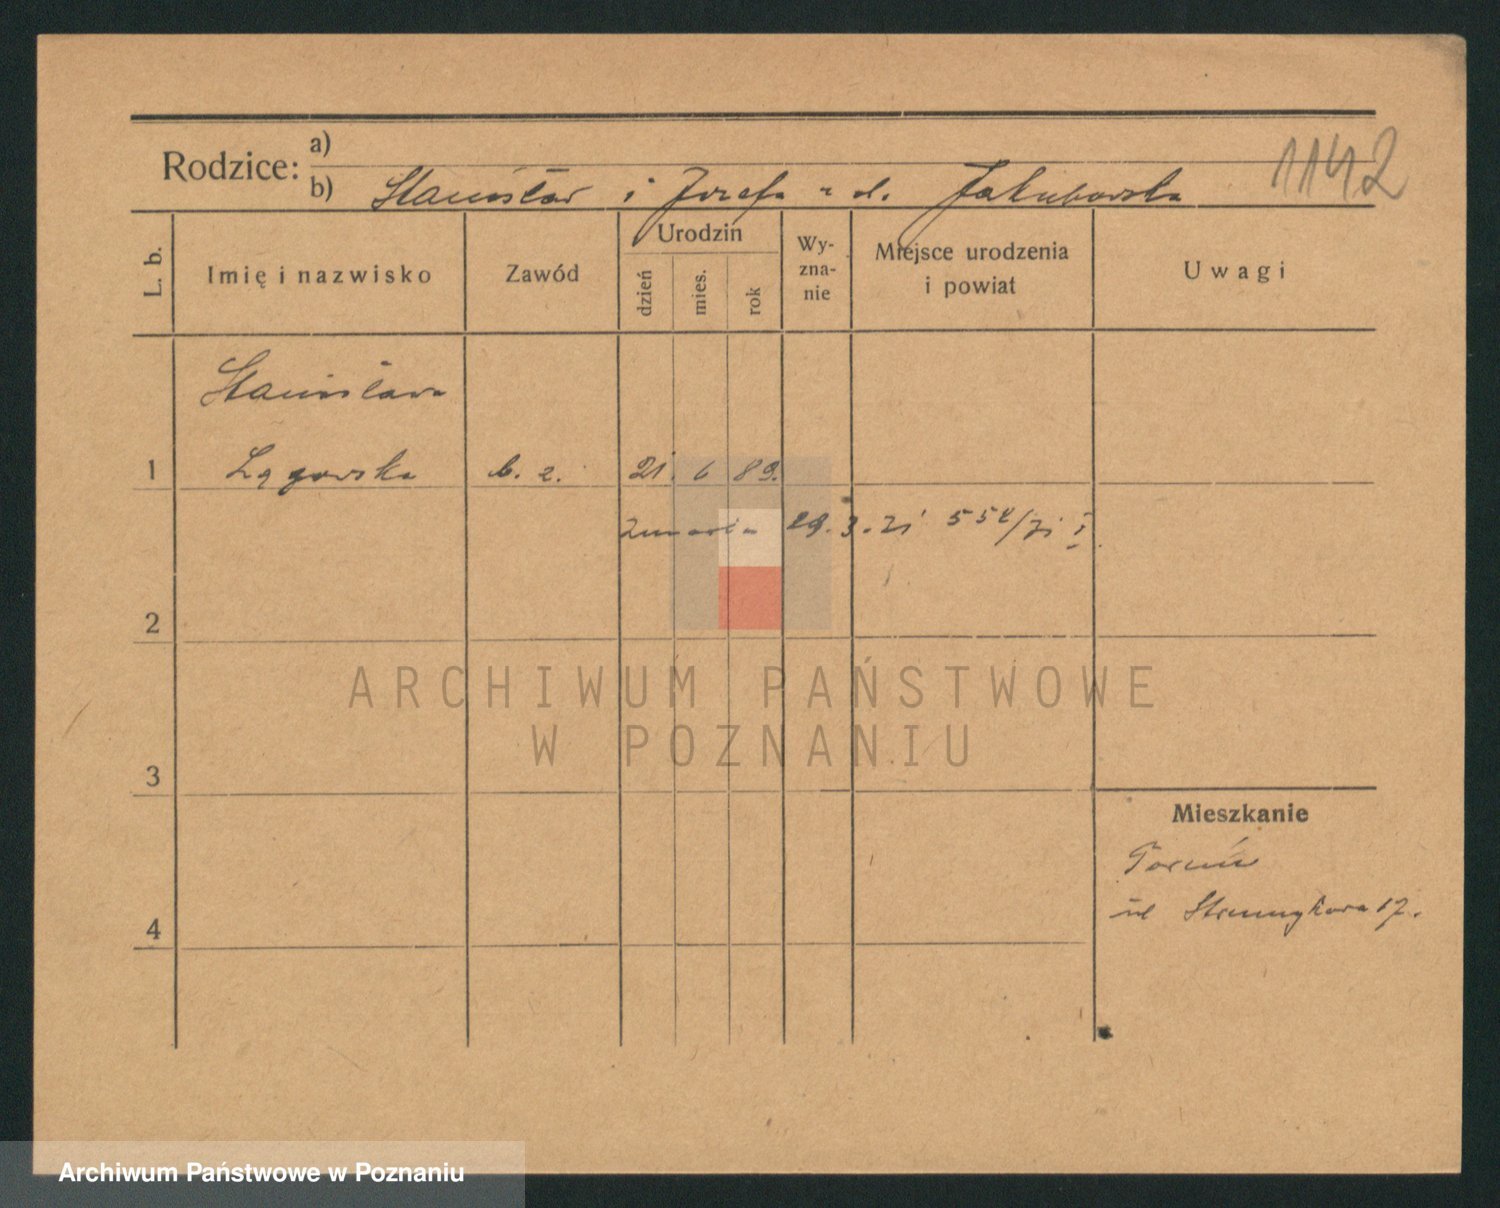 1142
Rodzice: a)
b) Stanisław i Józefa z d. Jakubowska
L. b.
Imię i nazwisko
Zawód
Urodzin
dzień
mies.
rok
Wy-
zna-
nie
Miejsce urodzenia
i powiat
Uwagi
Stanisława
1 Łągowska b. z. 21. 6 89.
zmarła 29. 3. 31
2
ARCHIWUM PAŃSTWOWE
W POZNANIU
3
Mieszkanie
Toruń
4
ul 17.
Archiwum Państwowe w Poznaniu